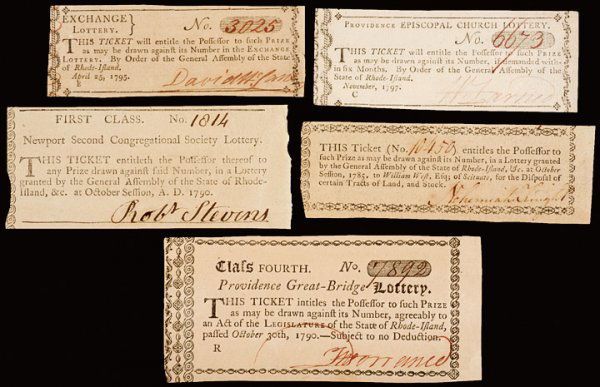 EXCHANGE
LOTTERY.
No. 3025
THIS TICKET will entitle the Possessor to such PRIZE
as may be drawn against its Number in the EXCHANGE
LOTTERY. By Order of the General Assembly of the State
of Rhode-Island.
April 25, 1795.
E
PROVIDENCE EPISCOPAL CHURCH LOTTERY.
No. 6673
THIS TICKET will entitle the Possessor to such PRIZE
as may be drawn against its Number, if demanded within
six Months. By Order of the General Assembly of the
State of Rhode-Island.
November, 1797.
C
FIRST CLASS. No. 1814
Newport Second Congregational Society Lottery.
THIS TICKET entitleth the Possessor thereof to
any Prize drawn against said Number, in a Lottery
granted by the General Assembly of the State of Rhode-
Island, &c. at October Session, A. D. 1790.
Robt Stevens
THIS Ticket (No. entitles the Possessor to
such Prize as may be drawn against its Number, in a Lottery
granted by the General Assembly of Rhode-Island, &c. at October
Session, 1785, to William West, Esq; of Scituate, for the Disposal of
certain Tracts of Land, and Stock.
Nehemiah Knight
Class FOURTH. No. 7892
Providence Great-Bridge Lottery.
THIS TICKET intitles the Possessor to such PRIZE
as may be drawn against its Number, agreeably to
an Act of the LEGISLATURE of the State of Rhode-Island,
passed October 30th, 1790.—Subject to no Deduction.
R